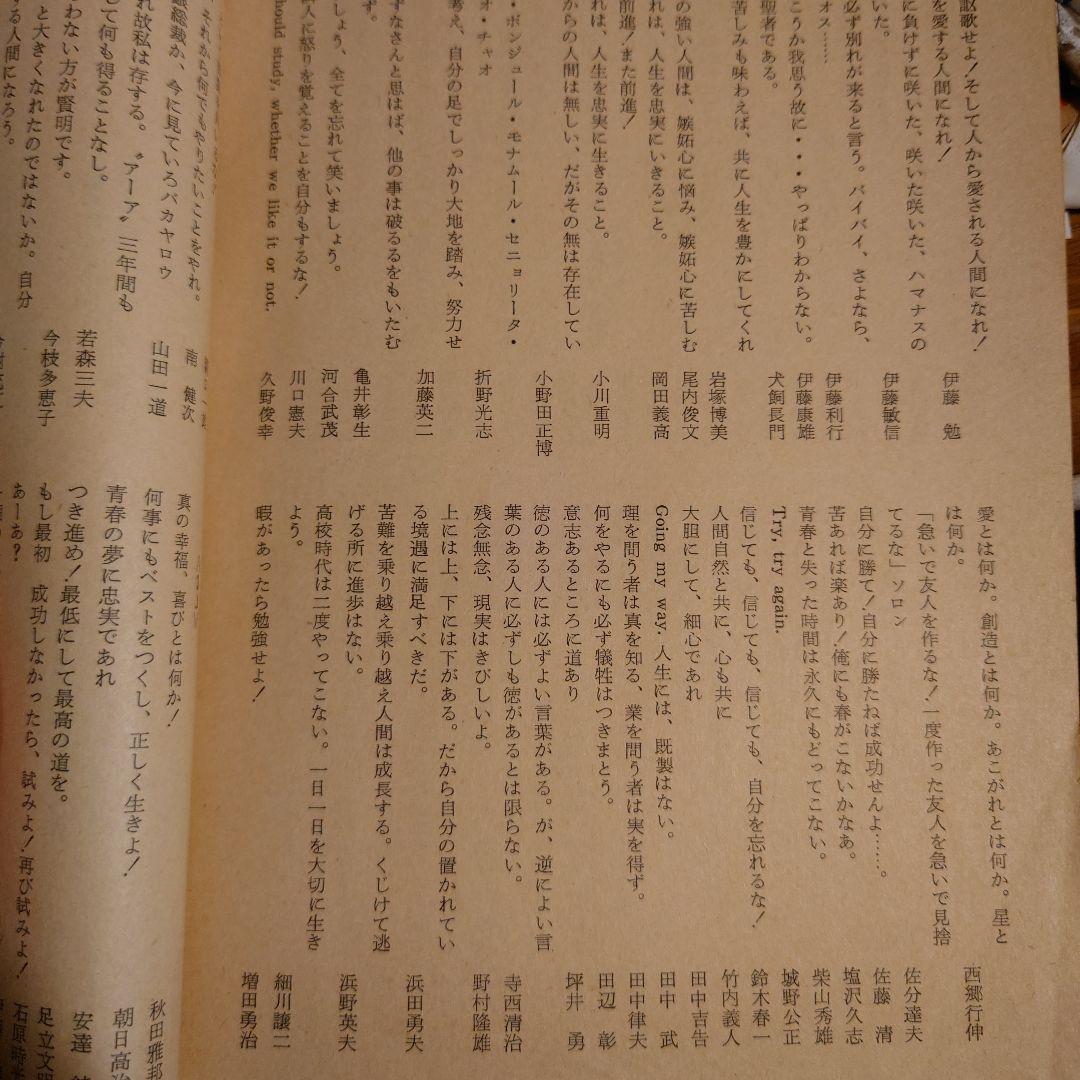 謳歌せよ！そして人から愛される人間になれ！
を愛する人間になれ！
伊藤　勉
に負けずに咲いた、咲いた咲いた、ハマナスの
いた。
伊藤敏信
必ず別れが来ると言う。バイバイ、さよなら、
オス……
伊藤利行
こうか我思う故に・・・やっぱりわからない。
伊藤康雄
聖者である。
犬飼長門
苦しみも味わえば、共に人生を豊かにしてくれ
岩塚博美
の強い人間は、嫉妬心に悩み、嫉妬心に苦しむ
尾内俊文
れは、人生を忠実にいきること。
岡田義高
前進！また前進！
れは、人生を忠実に生きること。
小川重明
からの人間は無しい、だがその無は存在してい
小野田正博
・ボンジュール・モナムール・セニョリータ・
オ・チャオ
折野光志
考え、自分の足でしっかり大地を踏み、努力せ
加藤英二
ずなさんと思はば、他の事は破るるをもいたむ
ず。
亀井彰生
しょう、全てを忘れて笑いましょう。
河合武茂
人に怒りを覚えることを自分もするな！
川口憲夫
hould study, whether we like it or not.
久野俊幸
愛とは何か。創造とは何か。あこがれとは何か。星と
は何か。
西郷行伸
「急いで友人を作るな！一度作った友人を急いで見捨
てるな」ソロン
佐分達夫
自分に勝て！自分に勝たねば成功せんよ……。
佐藤　清
苦あれば楽あり！俺にも春がこないかなあ。
塩沢久志
青春と失った時間は永久にもどってこない。
柴山秀雄
Try, try again.
城野公正
信じても、信じても、信じても、自分を忘れるな！
鈴木春一
人間自然と共に、心も共に
竹内義人
大胆にして、細心であれ
田中吉告
Going my way. 人生には、既製はない。
田中　武
理を問う者は真を知る、業を問う者は実を得ず。
田中律夫
何をやるにも必ず犠牲はつきまとう。
田辺　彰
意志あるところに道あり
坪井　勇
徳のある人には必ずよい言葉がある。が、逆によい言
葉のある人に必ずしも徳があるとは限らない。
寺西清治
残念無念、現実はきびしいよ。
野村隆雄
上には上、下には下がある。だから自分の置かれてい
る境遇に満足すべきだ。
浜田勇夫
苦難を乗り越え乗り越え人間は成長する。くじけて逃
げる所に進歩はない。
浜野英夫
高校時代は二度やってこない。一日一日を大切に生き
よう。
細川譲二
暇があったら勉強せよ！
増田勇治
それから何でもやりたいことをやれ。
南　健次
総裁か、今に見ていろバカヤロウ
山田一道
れ故私は存する。〝アーア〟三年間も
して何も得ることなし。
若森三夫
わない方が賢明です。
今枝多恵子
と大きくなれたのではないか。自分
する人間になろう。
真の幸福、喜びとは何か！
秋田雅邦
何事にもベストをつくし、正しく生きよ！
朝日高治
青春の夢に忠実であれ
安達
つき進め！最低にして最高の道を。
足立文
もし最初　成功しなかったら、試みよ！再び試みよ！
石原時
ぁーぁ？